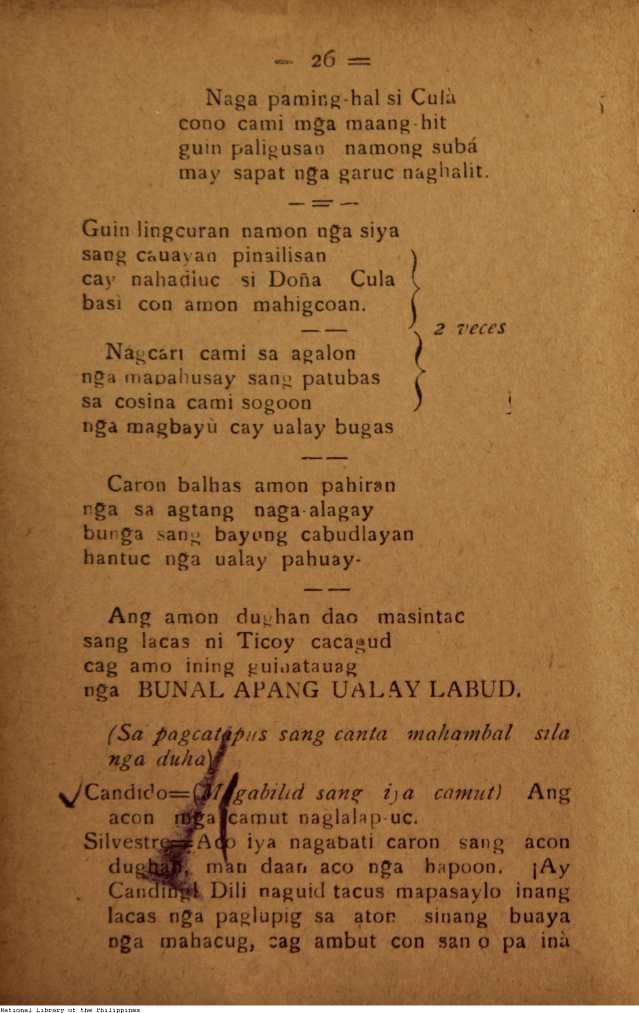 — 26 =
Naga paming-hal si Culà
cono cami mga maang-hit
guin paligusan namong subá
may sapat nga garuc naghalit.
Guin lingcuran namon nga siya
sang cauayan pinailisan
cay nahadiuc si Doña Cula
basi con amon mahigcoan.
2 veces
Nagcari cami sa agalon
nga mapahusay sang patubas
sa cosina cami sogoon
nga magbayù cay ualay bugas
Caron balhas amon pahiran
nga sa agtang naga-alagay
bunga sang bayong cabudlayan
hantuc nga ualay pahuay-
Ang amon dughan dao masintac
sang lacas ni Ticoy cacagud
cag amo ining guinatauag
nga BUNAL APANG UALAY LABUD.
(Sa pagcatapus sang canta mahambal sila
nga duha)
Candido=(Magabilid sang iya camut) Ang
acon mga camut naglalap-uc.
Silvestre=Aco iya nagabati caron sang acon
dughan, man daan aco nga hapoon. ¡Ay
Canding! Dili naguid tacus mapasaylo inang
lacas nga paglupig sa aton sinang buaya
nga mahacug, cag ambut con san o pa inà
National Library of the Philippines